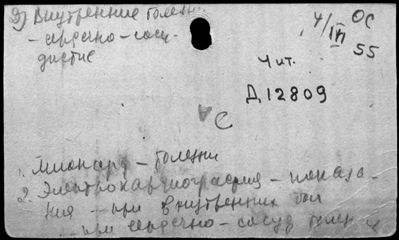 9) Внутренние болезни
- сердечно - сосу-
дистые
4/IV 55
ОС
Чит.
Д12809
1. Миокард - болезни
2. Электрокардиография - показа-
ния - при внутренних бол
при сердечно - сосуд